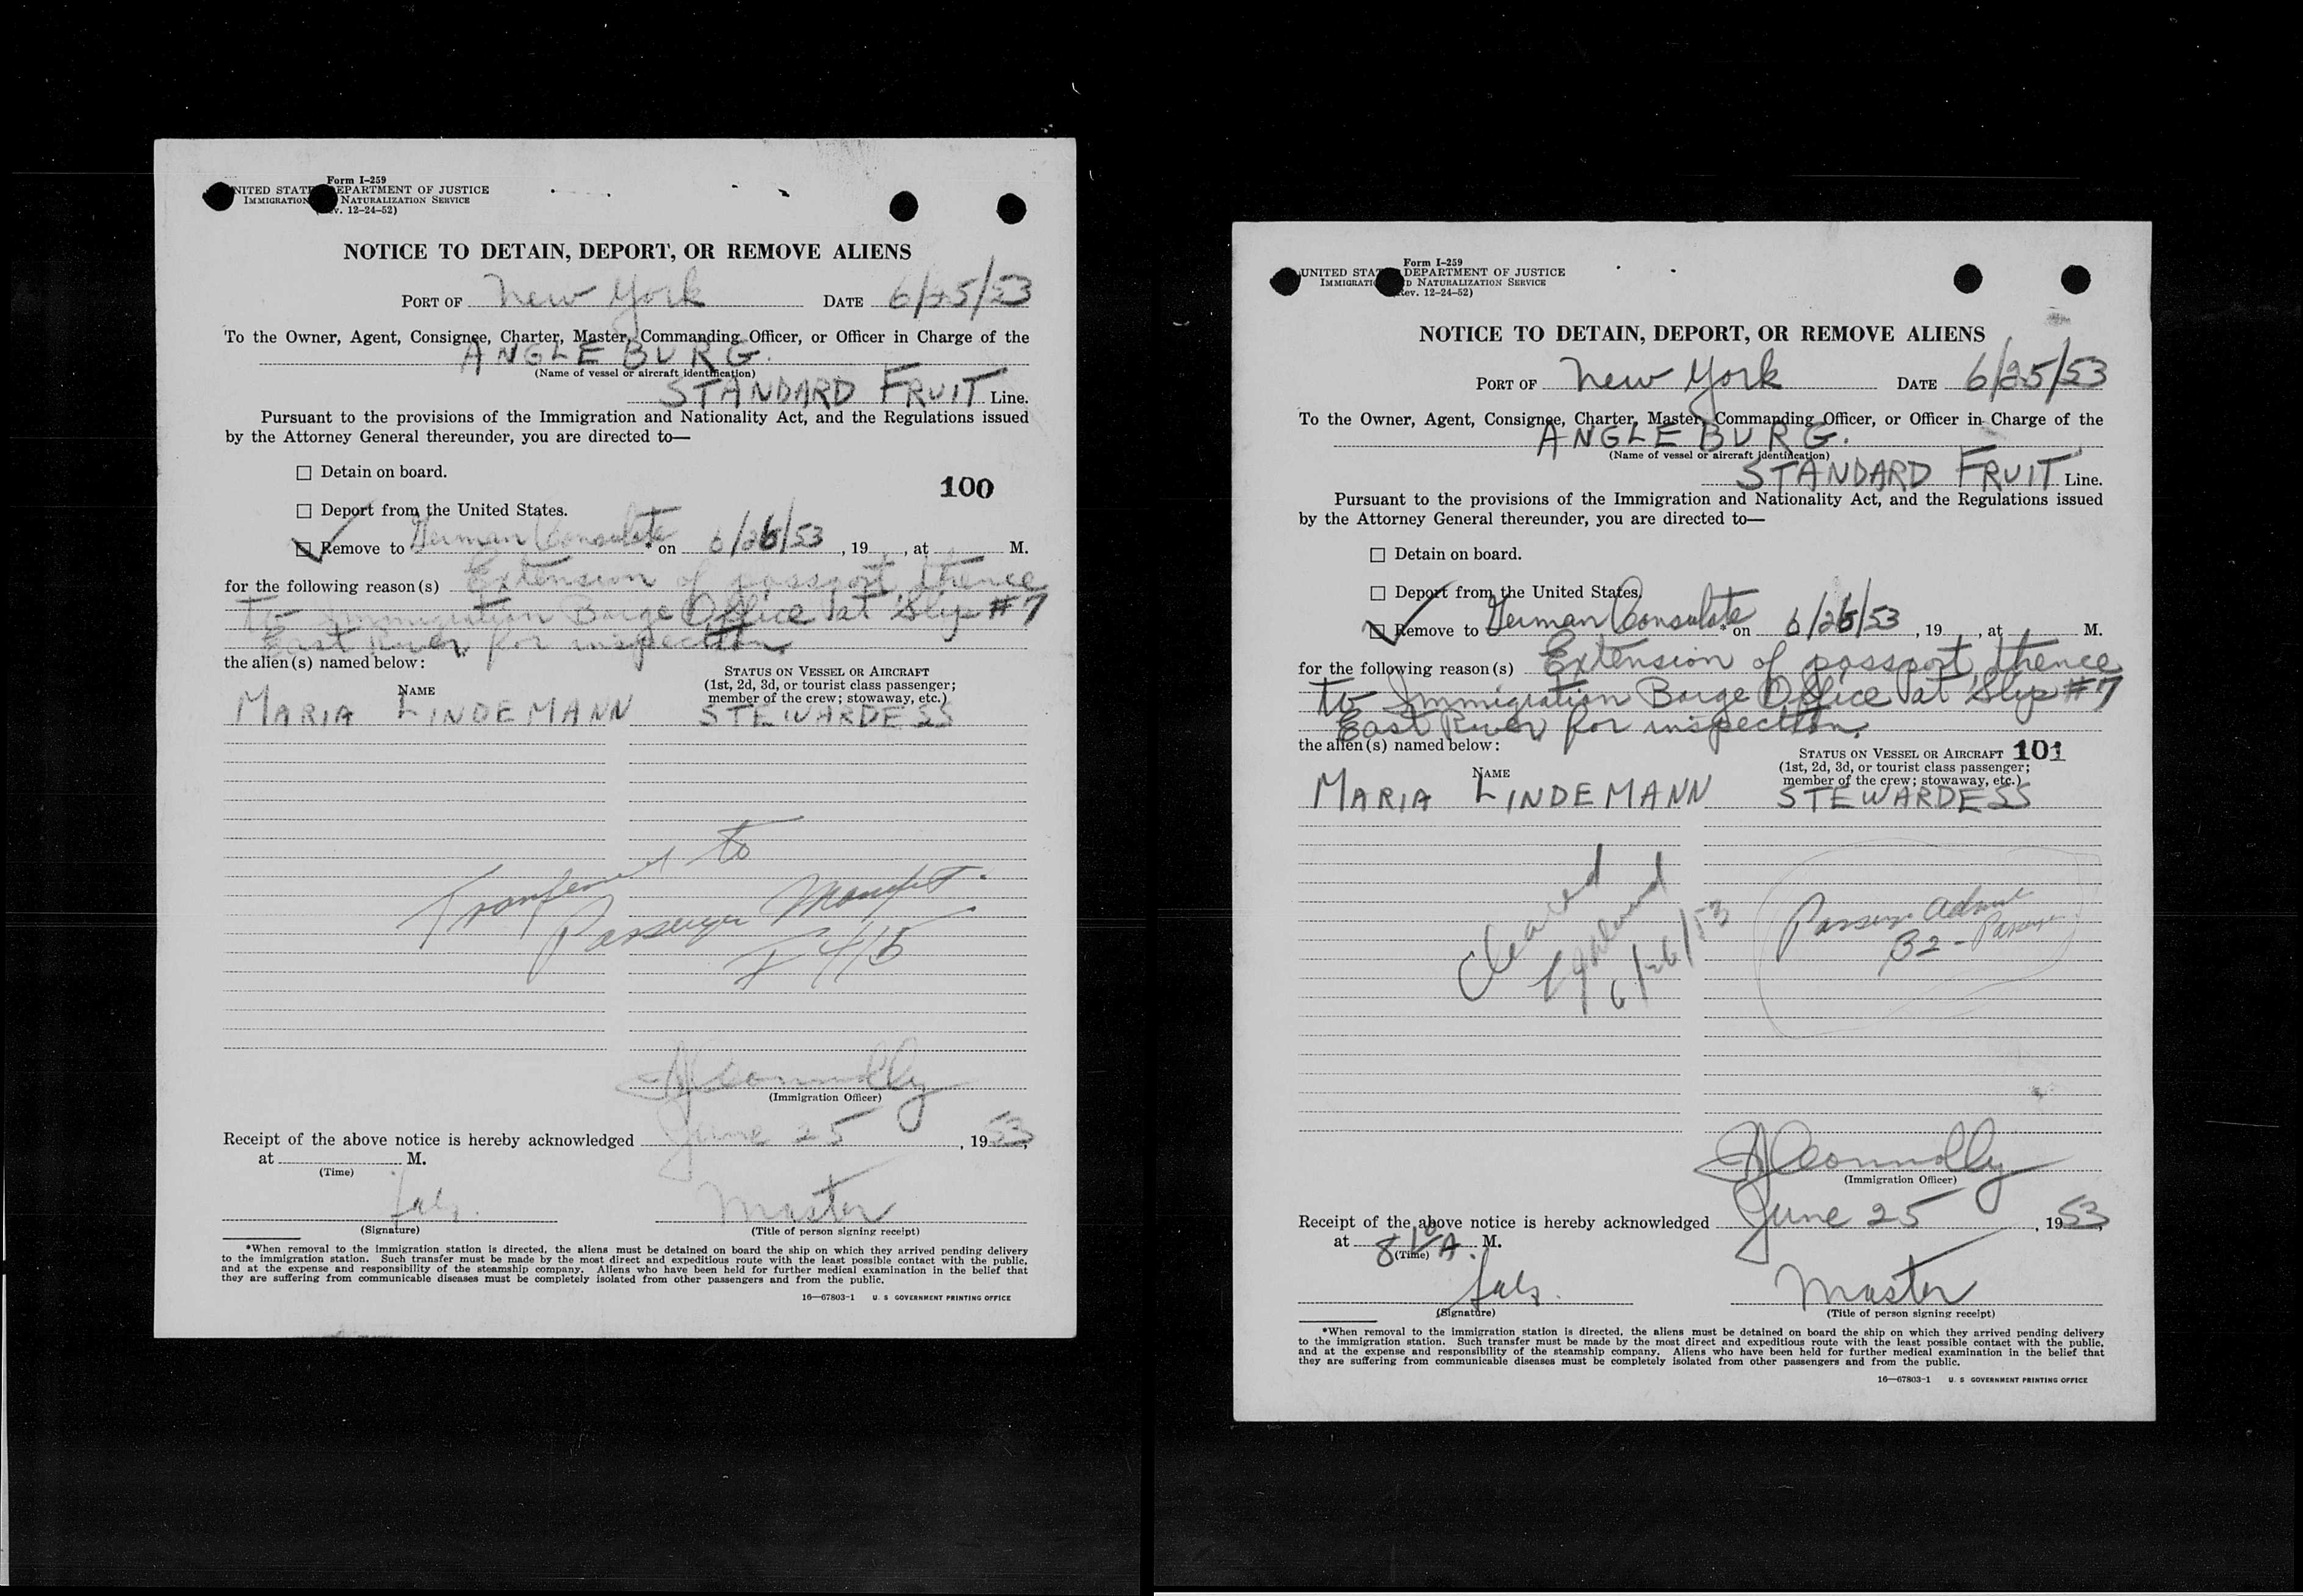 Form I-259
UNITED STATES DEPARTMENT OF JUSTICE
IMMIGRATION NATURALIZATION SERVICE
v. 12-24-52)
NOTICE TO DETAIN, DEPORT, OR REMOVE ALIENS
PORT OF New York DATE 6/25/53
To the Owner, Agent, Consignee, Charter, Master, Commanding Officer, or Officer in Charge of the
ANGLEBURG.
(Name of vessel or aircraft identification)
STANDARD FRUIT Line.
Pursuant to the provisions of the Immigration and Nationality Act, and the Regulations issued
by the Attorney General thereunder, you are directed to—
☐ Detain on board.
100
☐ Deport from the United States.
☑ Remove to German Consulate * on 6/26/53, 19 , at M.
for the following reason(s) Extension of passport, thence
to Immigration Barge Office at Slip #7
East River for inspection.
the alien(s) named below:
STATUS ON VESSEL OR AIRCRAFT
(1st, 2d, 3d, or tourist class passenger;
NAME member of the crew; stowaway, etc.)
MARIA LINDEMANN STEWARDESS
Transferred to
Passenger Manifest
I 415
Connolly
(Immigration Officer)
Receipt of the above notice is hereby acknowledged June 25, 1953,
at M.
(Time)
Master
(Signature) (Title of person signing receipt)
*When removal to the immigration station is directed, the aliens must be detained on board the ship on which they arrived pending delivery
to the immigration station. Such transfer must be made by the most direct and expeditious route with the least possible contact with the public,
and at the expense and responsibility of the steamship company. Aliens who have been held for further medical examination in the belief that
they are suffering from communicable diseases must be completely isolated from other passengers and from the public.
16—67803-1 U. S GOVERNMENT PRINTING OFFICE
Form I-259
UNITED STATES DEPARTMENT OF JUSTICE
IMMIGRATION D NATURALIZATION SERVICE
ev. 12-24-52)
NOTICE TO DETAIN, DEPORT, OR REMOVE ALIENS
PORT OF New York DATE 6/25/53
To the Owner, Agent, Consignee, Charter, Master, Commanding Officer, or Officer in Charge of the
ANGLEBURG.
(Name of vessel or aircraft identification)
STANDARD FRUIT Line.
Pursuant to the provisions of the Immigration and Nationality Act, and the Regulations issued
by the Attorney General thereunder, you are directed to—
☐ Detain on board.
☐ Deport from the United States.
☑ Remove to German Consulate * on 6/26/53, 19 , at M.
for the following reason(s) Extension of passport, thence
to Immigration Barge Office at Slip #7
East River for inspection.
the alien(s) named below:
STATUS ON VESSEL OR AIRCRAFT 101
(1st, 2d, 3d, or tourist class passenger;
NAME member of the crew; stowaway, etc.)
MARIA LINDEMANN STEWARDESS
Cleared
6/26/53
B2 -
Connolly
(Immigration Officer)
Receipt of the above notice is hereby acknowledged June 25, 1953,
at 8 10 A. M.
(Time)
Master
(Signature) (Title of person signing receipt)
*When removal to the immigration station is directed, the aliens must be detained on board the ship on which they arrived pending delivery
to the immigration station. Such transfer must be made by the most direct and expeditious route with the least possible contact with the public,
and at the expense and responsibility of the steamship company. Aliens who have been held for further medical examination in the belief that
they are suffering from communicable diseases must be completely isolated from other passengers and from the public.
16—67803-1 U. S GOVERNMENT PRINTING OFFICE